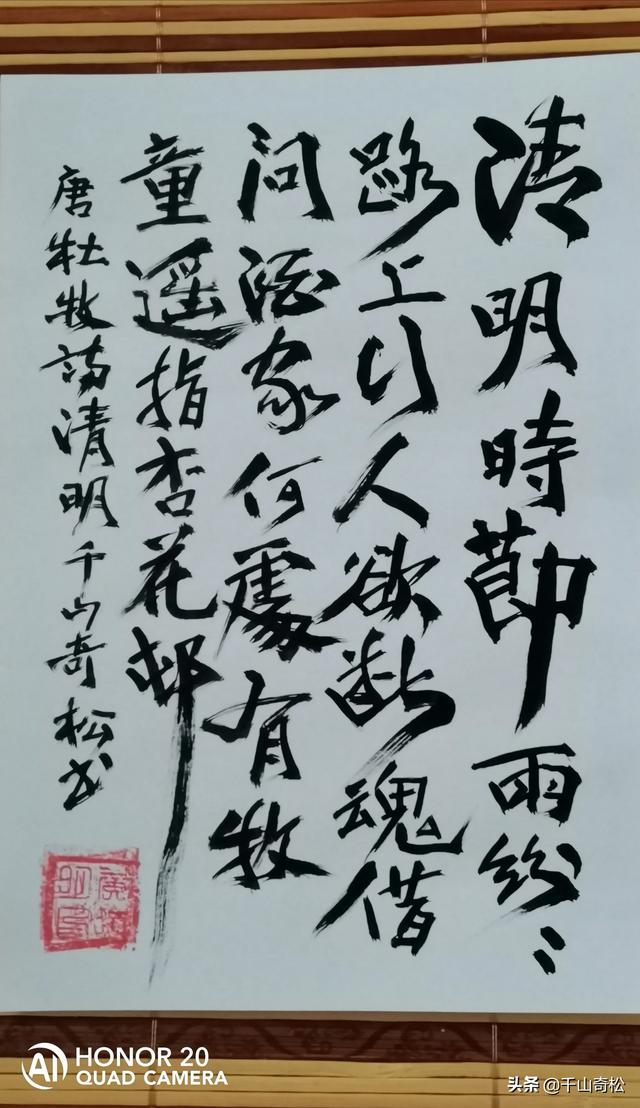 清明時莭雨紛〻
路上行人欲断魂借
問酒家何處有牧
童遥指杏花邨
唐杜牧诗清明千山奇松书
AI HONOR 20
QUAD CAMERA
头条 @千山奇松